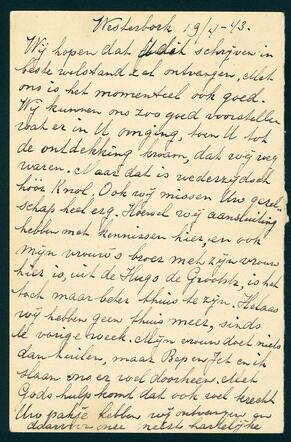 Westerbork 19/4-'43.
Wij hopen dat U dit schrijven in
beste welstand zal ontvangen, Met
ons is het momenteel ook goed.
Wij kunnen ons zoo goed voorstellen
wat er in U omging, toen U tot
de ontdekking kwam, dat wij weg
waren. Maar dat is wederzijdsch
hoor Knol. Ook wij missen Uw gezel-
schap heel erg. Hoewel wij aansluiting
hebben met kennissen hier, en ook
mijn vrouw's broer met zijn vrouw
hier is, uit de Hugo de Grootstr, is het
toch maar beter thuis te zijn. Helaas
wij hebben geen thuis meer, sinds
de vorige week. Mijn vrouw doet niets
dan huilen, maar Bep en Jet en ik
slaan ons er wel doorheen. Met
Gods hulp komt dat ook wel terecht
Uw pakje hebben wij ontvangen en
daarvoor onze meest hartelijke